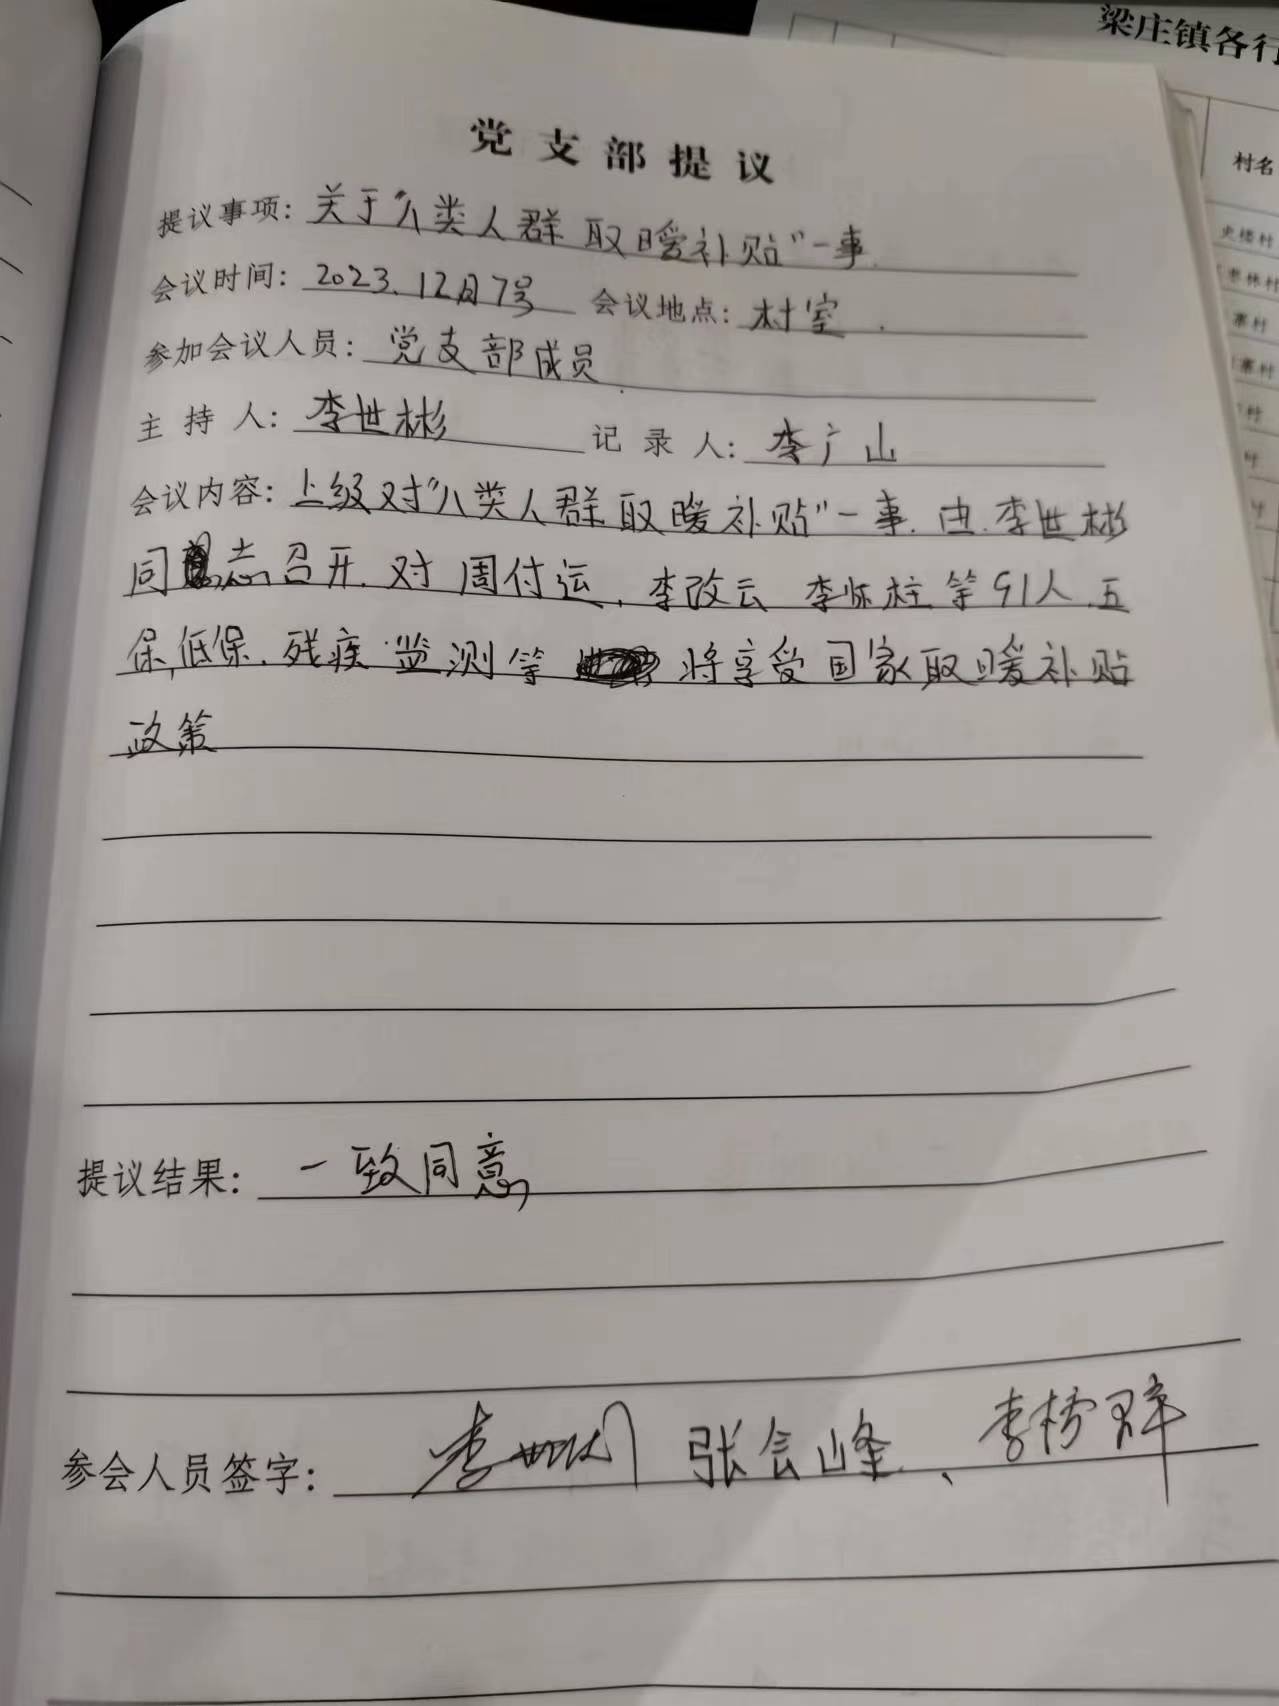 梁庄镇各行
村名
史楼村
寨村
寨村
党支部提议
提议事项：关于"八类人群取暖补贴"一事.
会议时间：2023.12月7号 会议地点：村室.
参加会议人员：党支部成员
主持人：李世彬 记录人：李广山
会议内容：上级对"八类人群取暖补贴"一事.由.李世彬
同志召开.对周付运.李改云 李怀柱等91人.五
保,低保.残疾.监测等 将享受国家取暖补贴
政策
提议结果：一致同意
参会人员签字： 张会峰、李